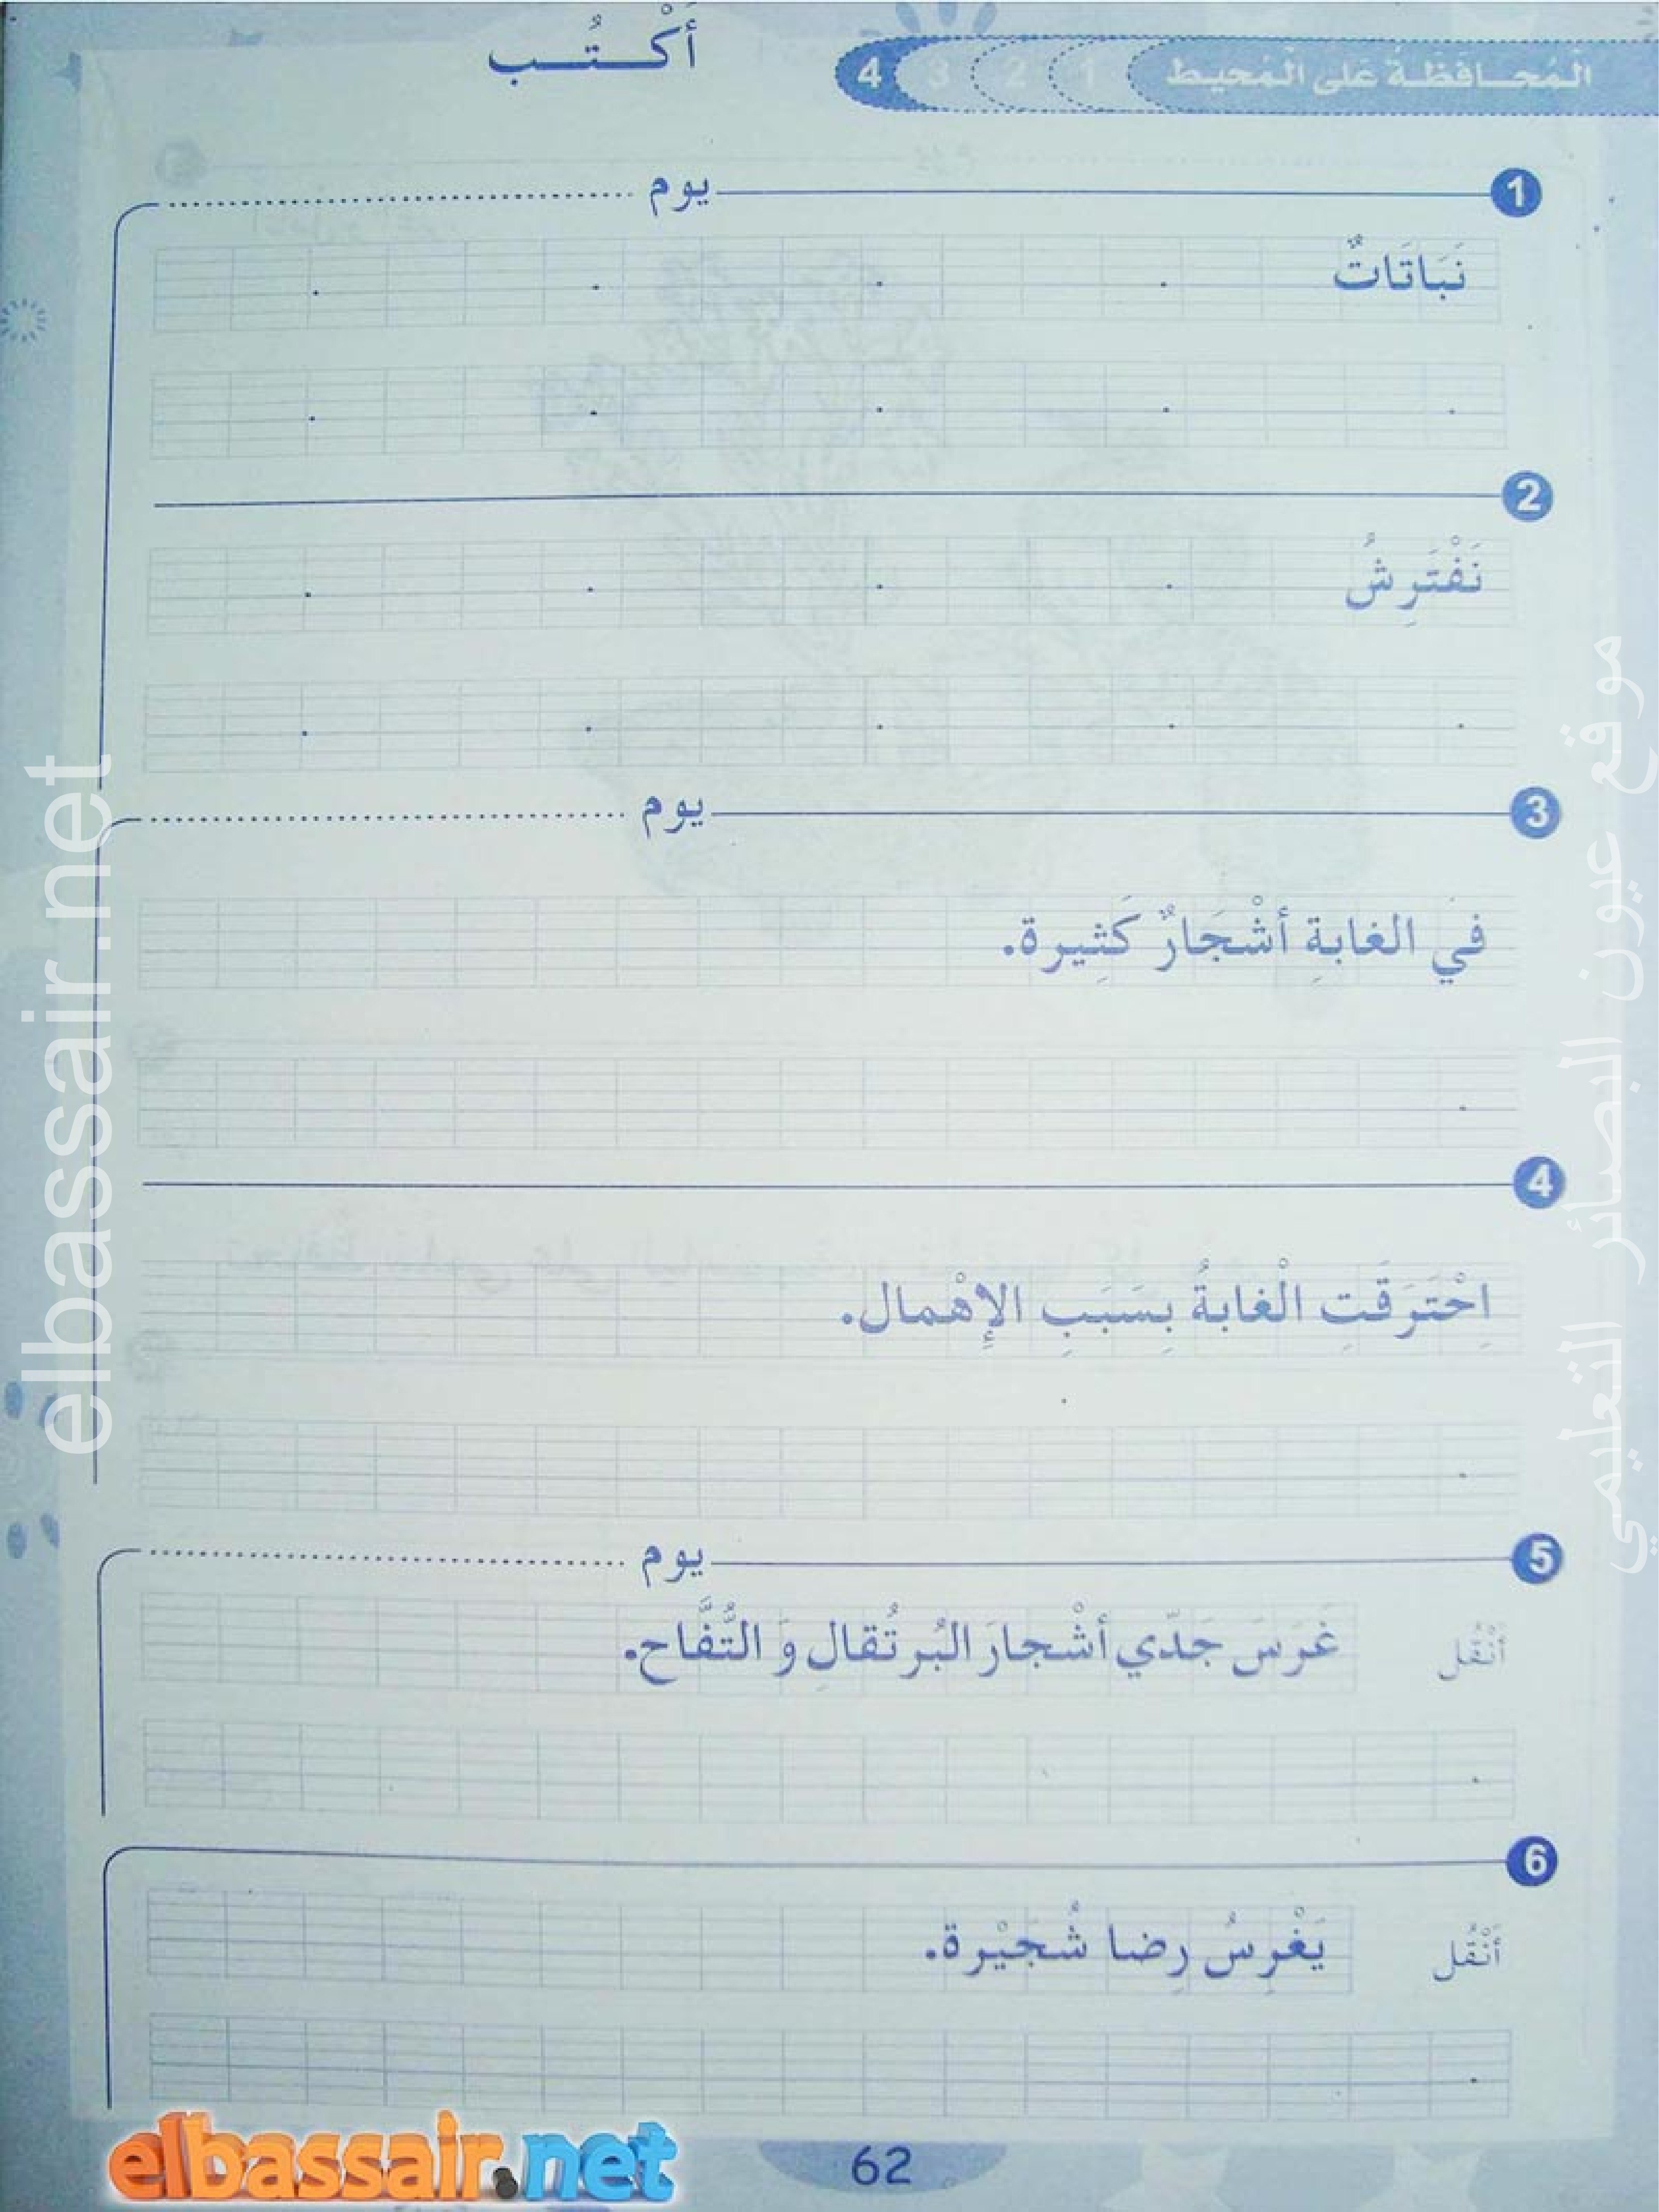 المُحافَظةُ عَلى المُحيط 1 2 3 4
أَكْتُب
1 يوم
نَبَاتَاتٌ
2
نَفْتَرِشُ
3 يوم
في الغابةِ أشْجَارٌ كَثِيرة.
4
اِحْتَرَقَتِ الْغابةُ بِسَبَبِ الإِهْمال.
5 يوم
أَنْقُل
غَرَسَ جَدّي أشْجارَ البُرتُقالِ وَ التُّفَّاح.
6
أَنْقُل
يَغْرِسُ رِضا شُجَيْرة.
62
elbassair.net
elbassair.net
موقع عيون البصائر التعليمي